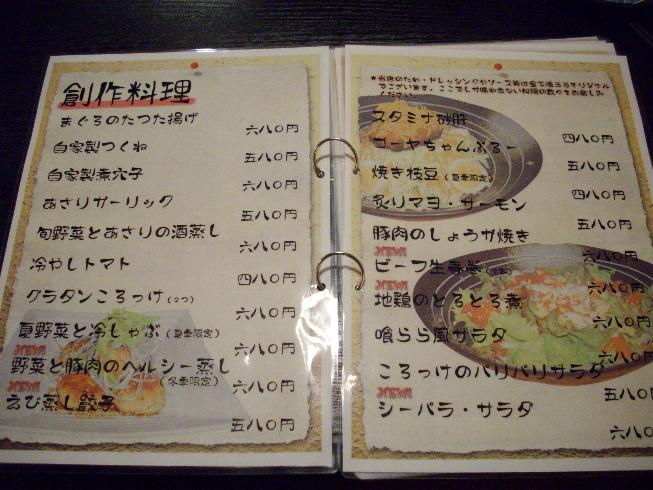 創作料理
まぐろのたつた揚げ 六八〇円
自家製つくね 五八〇円
自家製煮穴子 六八〇円
あさりガーリック 五八〇円
旬野菜とあさりの酒蒸し 六八〇円
冷やしトマト 四八〇円
グラタンころっけ(2つ) 六八〇円
夏野菜と冷しゃぶ(夏季限定) 六八〇円
NEW!
野菜と豚肉のヘルシー蒸し(冬季限定) 六八〇円
NEW!
えび蒸し餃子 五八〇円
★当店のたれ・ドレッシングやソース等は全て喰ららオリジナル
でございます。ここでしか味わえない料理の数々をお楽しみ
ください。
スタミナ砂肝 四八〇円
ゴーヤちゃんぷるー 五八〇円
焼き枝豆(夏季限定) 四八〇円
炙りマヨ・サーモン 五八〇円
豚肉のしょうが焼き 六八〇円
NEW!
ビーフ生春巻 六八〇円
NEW!
地鶏のとろとろ煮 六八〇円
喰らら風サラダ 六八〇円
ころっけのパリパリサラダ 五八〇
NEW!
シーパラ・サラダ 六八〇